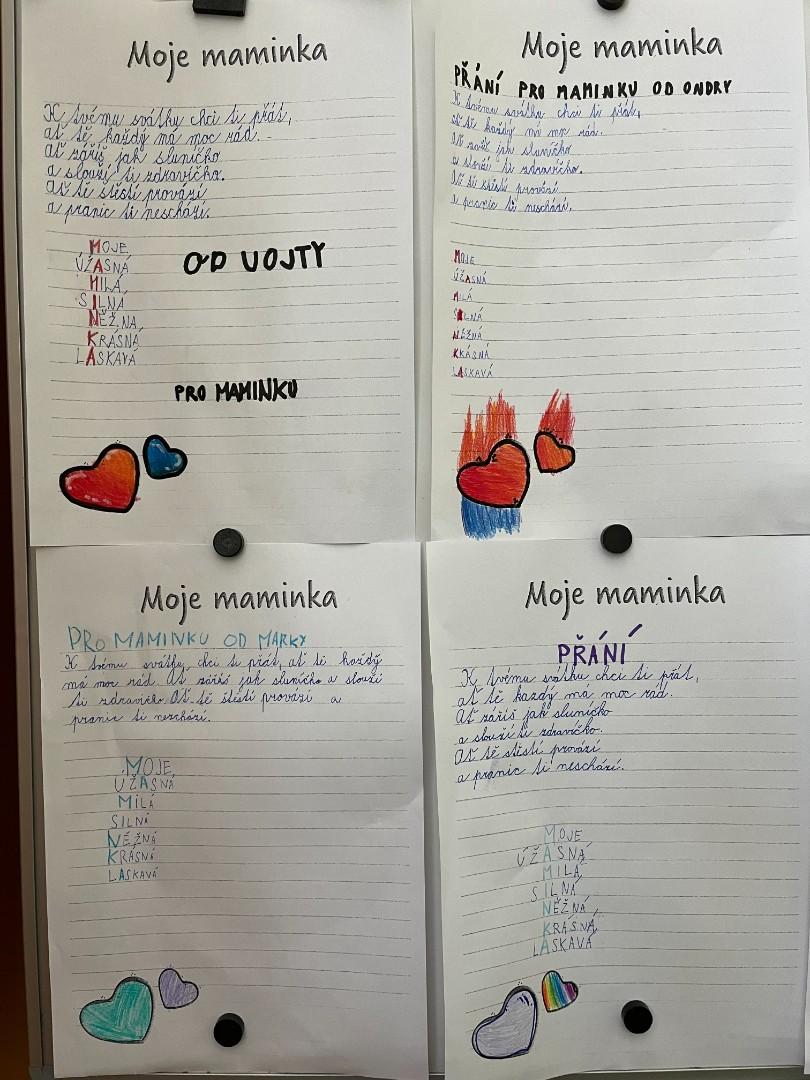 Moje maminka
K tvému svátku chci ti přát,
ať tě každý má moc rád.
Ať záříš jak sluníčko
a slouží ti zdravíčko.
Ať tě štěstí provází
a pranic ti neschází.
MOJE
ÚŽASNÁ
MILÁ,
SILNÁ
NĚŽNÁ,
KRÁSNÁ
LASKAVÁ
OD VOJTY
PRO MAMINKU
Moje maminka
PŘÁNÍ PRO MAMINKU OD ONDRY
K tvému svátku chci ti přát,
ať tě každý má moc rád.
Ať jak sluníčko
a slouží ti zdravíčko.
Ať tě štěstí provází
a pranic ti neschází.
MOJE
ÚŽASNÁ
MILÁ
SILNÁ
NĚŽNÁ
KKÁSNÁ
LASKAVÁ
Moje maminka
PRO MAMINKU OD MARKY
K tvému svátku, chci ti přát, ať tě každý
má moc rád. Ať záříš jak sluníčko a slouží
ti zdravíčko. Ať tě štěstí provází a
pranic ti neschází.
MOJE
ÚŽASNÁ
MILÁ
SILNÁ
NĚŽNÁ
KRÁSNÁ
LASKAVÁ
Moje maminka
PŘÁNÍ
K tvému svátku chci ti přát,
ať tě každý má moc rád.
Ať záříš jak sluníčko
a slouží ti zdravíčko.
Ať tě štěstí provází
a pranic ti neschází.
MOJE
ÚŽASNÁ
MILÁ
SILNÁ
NĚŽNÁ
KRÁSNÁ,
LASKAVÁ